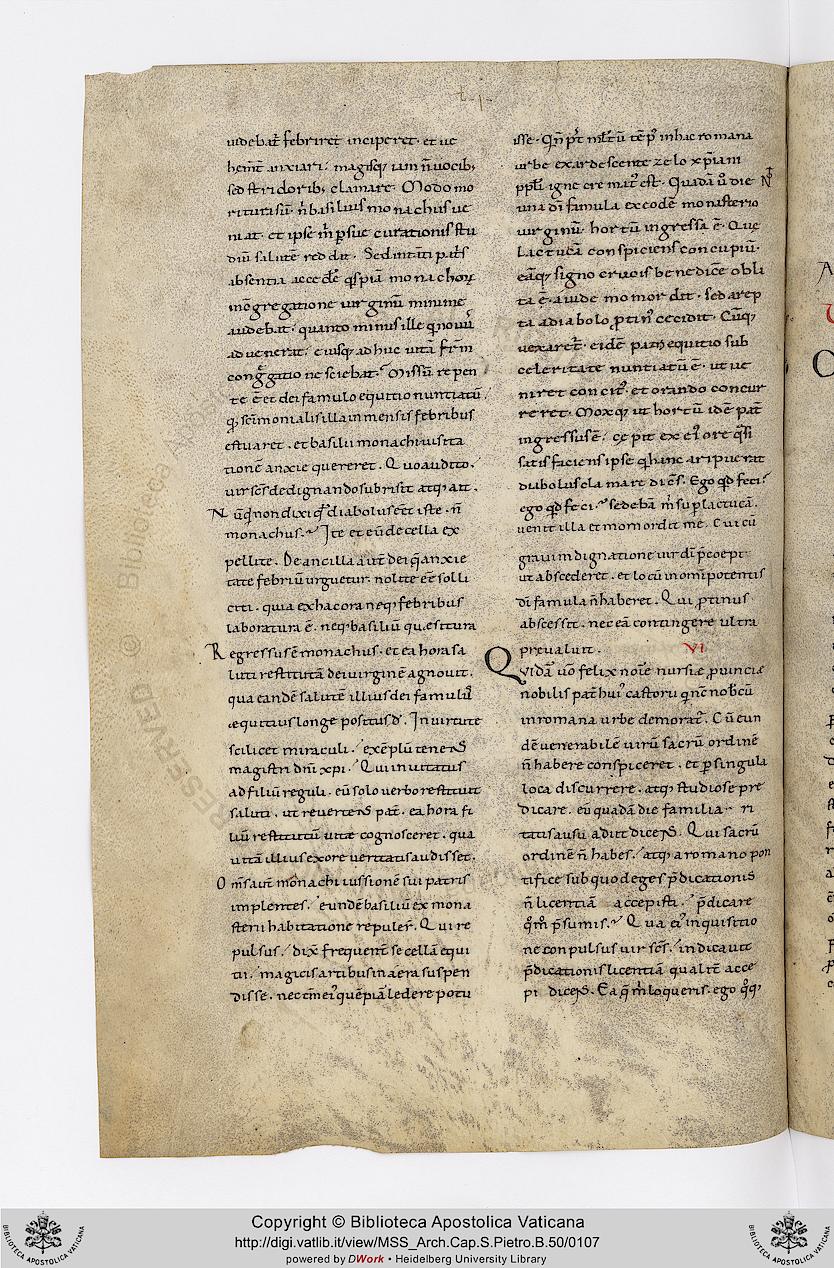 uidebat̃ febriret inciperet · et ue
hem̃t anxiari · magisq; iam ñ uocib;
sed stridorib; clamare · Modo mo
ritur isũ · ñ basilius monachus ue
niat · et ipse m̃ p sue curationis stu
diũ salutẽ reddat · Sed in tãti pat̃s
absentia accedẽ q̃spiã monachoꝝ
in cõgregatione uirginũ minime
audebat · quanto minus ille q̃ nouũ
aduenerat · eiusq; adhuc uitã fr̃m
cong̃gatio nesciebat · Missũ repen
te ẽ et dei famulo equitio nuntiatũ
q; sc̃imonialis illa inmensis febribus
estuaret · et basilii monachi uisita
tionẽ anxie quereret · Quo audito ·
uir sc̃s dedignando subrisit atq; ait ·
Nũqd non dixi q̃ diabolus eẽt iste · ñ
monachus · Ite et eũ de cella ex
pellite · De ancilla aut̃ dei q̃ anxie
tate febriũ urguetur · nolite eẽ solli
citi · quia ex hac ora neq; febribus
laboratura ẽ · neq; basiliũ quęsitura
Regressus ẽ monachus · et ea hora sa
luti restitutã dei uirginẽ agnouit ·
qua eandẽ salutẽ illius dei famulus
ęquitius longe positus d̃ · In uirtute
scilicet miraculi · exẽplũ tenens
magistri dñi xpi · Qui inuitatus
ad filiũ reguli · eũ solo uerbo restituit
saluti · ut reuertens pat̃ · ea hora fi
liũ restitutũ uitę cognosceret · qua
uitã illius ex ore ueritatis audisset ·
Om̃s aut̃ monachi iussionẽ sui patris
implentes · eundẽ basiliũ ex mona
sterii habitatione repuler̃ · Qui re
pulsus · dix̃ frequent̃ se cellã equi
tii · magicis artibus in aera suspen
disse · nec tm̃ ei quẽpiã ledere potu
isse · Qñ p̃t ml̃tũ tẽp; in hac romana
urbe exardescente zelo xp̃iani
pp̃li igne crematus̃ est · Quadã ũo die
una di famula ex eodẽ monasterio
uirginũ · hortũ ingressa ẽ · Que
lactucã conspiciens concupiuit ·
eãq; signo crucis benedicẽ obli
ta ẽ · auide momordit · sed arep
ta a diabolo p̃tin; cecidit · Cũq;
uexaret̃ · eidẽ patri equitio sub
celeritate nuntiatũ ẽ · ut ue
niret concit; · et orando concur
reret · Moxq; ut hortũ idẽ pat̃
ingressus ẽ · cępit ex ei; ore q̃si
satisfaciens ipse q̃ hanc aripuerat
diabolus clamare dicẽs · Ego qd feci ·
ego qd feci · sedebã m̃ sup lactucã ·
uenit illa et momordit me · Cui cũ
graui indignatione uir di p̃coepit
ut abscederet · et locũ in om̃ipotentis
di famula ñ haberet · Qui p̃tinus
abscessit · nec eã contingere ultra
preualuit · VI
Quidã ũo felix noĩe nursię p̃uincię
nobilis pat̃ hui; castorii q̃ nc nob̃cũ
in romana urbe demorat̃ · Cũ eun
dẽ uenerabilẽ uirũ sacrũ ordinẽ
ñ habere conspiceret · et p singula
loca discurrere · atq; studiose pre
dicare · eũ quadã die familia ri
tatis ausu adiit dicens · Qui sacrũ
ordinẽ ñ habes · atq; a romano pon
tifice sub quo deges p̃dicationis
ñ licentiã accepisti · p̃dicare
q̃m̃ p̃sumis · Qua ei; inquisitio
ne conpulsus uir sc̃s · indicauit
p̃dicationis licentiã qualit̃ acce
pit dicens · Ea q̃ m̃ loqueris · ego q̃q;
Copyright © Biblioteca Apostolica Vaticana
http://digi.vatlib.it/view/MSS_Arch.Cap.S.Pietro.B.50/0107
powered by DWork • Heidelberg University Library